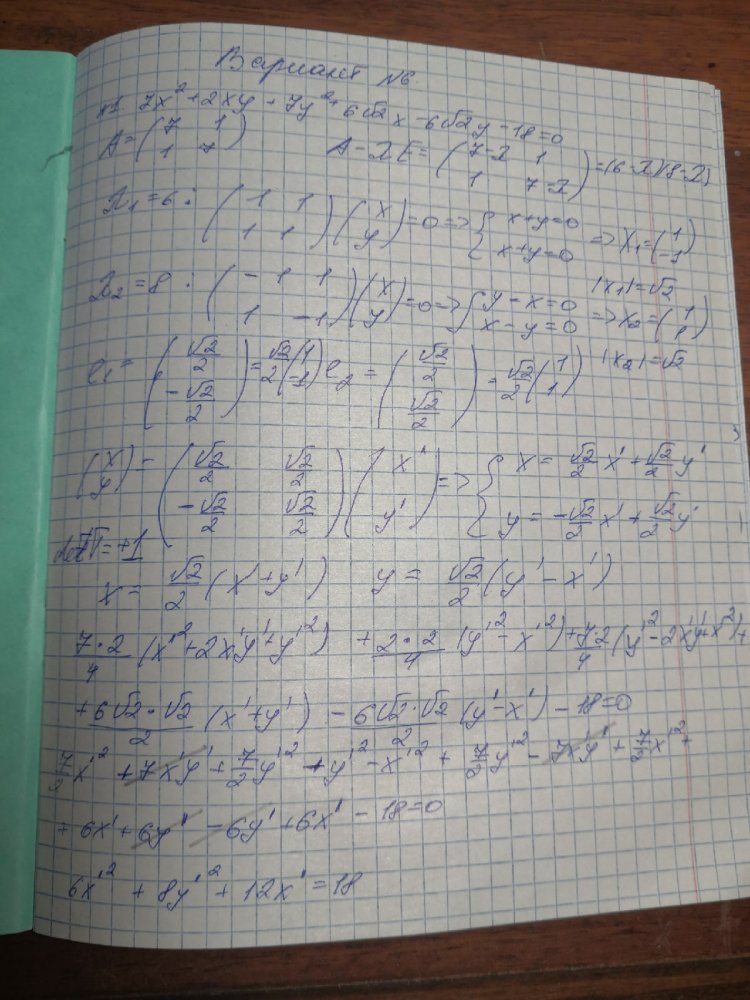 Вариант №6.
№1 7x² + 2xy + 7y² + 6√2x - 6√2y - 18 = 0
A = (7 1; 1 7) A - λE = (7-λ 1; 1 7-λ) = (6-λ)(8-λ)
λ₁ = 6 : (1 1; 1 1)(x; y) = 0 => { x+y=0; x+y=0 => X₁ = (1; -1)
|X₁| = √2
λ₂ = 8 : (-1 1; 1 -1)(x; y) = 0 => { y-x=0; x-y=0 => X₂ = (1; 1)
|X₂| = √2
e₁ = (√2/2; -√2/2) = √2/2 (1; -1) e₂ = (√2/2; √2/2) = √2/2 (1; 1)
(x; y) = (√2/2 √2/2; -√2/2 √2/2)(x'; y') => { x = √2/2 x' + √2/2 y'; y = -√2/2 x' + √2/2 y'
= +1
x = √2/2 (x'+y') y = √2/2 (y'-x')
7·2/4 (x'² + 2x'y' + y'²) + 2·2/4 (y'² - x'²) + 7·2/4 (y'² - 2x'y' + x'²) +
+ 6√2·√2/2 (x'+y') - 6√2·√2/2 (y'-x') - 18 = 0
7/2 x'² + 7x'y' + 7/2 y'² + y'² - x'² + 7/2 y'² - 7x'y' + 7/2 x'² +
+ 6x' + 6y' - 6y' + 6x' - 18 = 0
6x'² + 8y'² + 12x' = 18